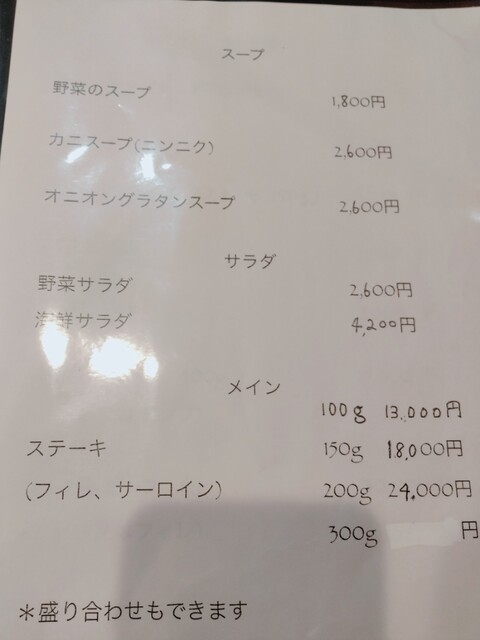 スープ
野菜のスープ 1,800円
カニスープ(ニンニク) 2,600円
オニオングラタンスープ 2,600円
サラダ
野菜サラダ 2,600円
海鮮サラダ 4,200円
メイン
100g 13,000円
ステーキ 150g 18,000円
(フィレ、サーロイン) 200g 24,000円
300g 円
＊盛り合わせもできます